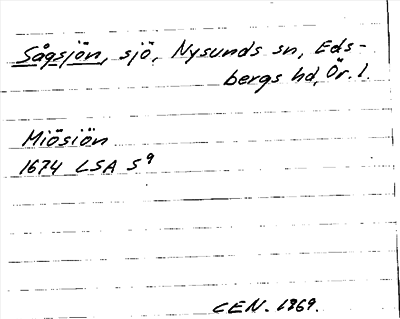 Sågsjön, sjö, Nysunds sn, Eds-
bergs hd, Ör. l.
Miösiön
1674 LSA S9
CEN. 1969.